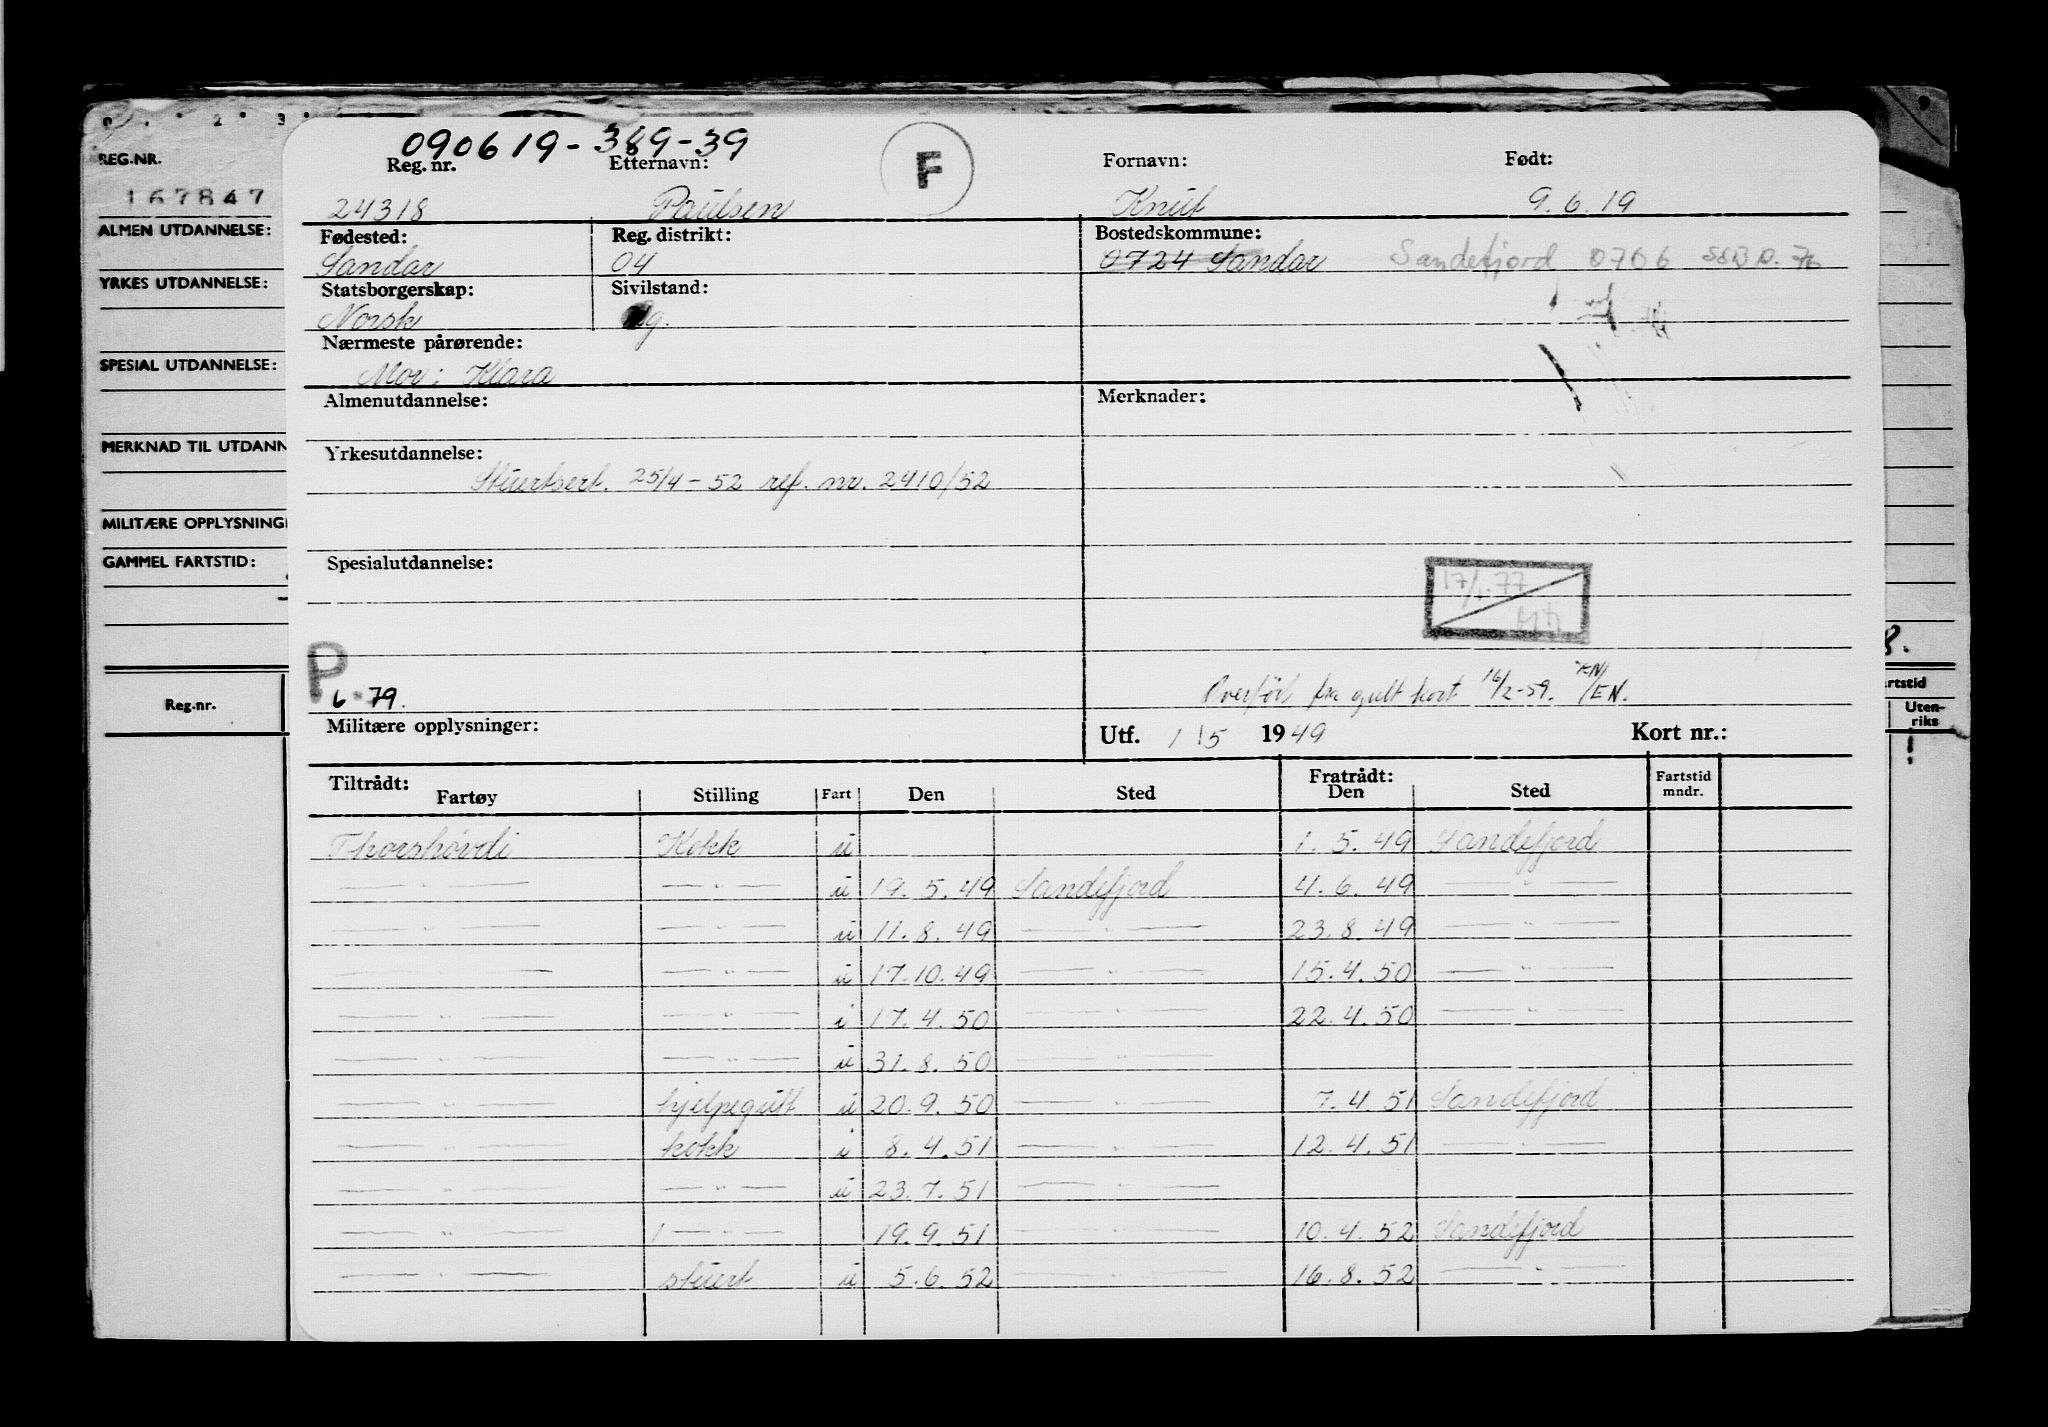 090619-389-39
Reg. nr. Etternavn: F Fornavn: Født:
24318 Paulsen Knut 9.6.19
Fødested: Reg. distrikt: Bostedskommune:
Sandar 04 0724 Sandar Sandefjord 0706
Statsborgerskap: Sivilstand:
Norsk g.
Nærmeste pårørende:
Mor: Klara
Almenutdannelse: Merknader:
Yrkesutdannelse:
Stuertsert. 25/4-52 ref. nr. 2410/52
Spesialutdannelse:
17/1.77
P
6-79.
Overført fra gult kort 16/2-59. KN/EN.
Militære opplysninger: Utf. 1/5 1949 Kort nr.:
Tiltrådt: Fratrådt:
Fartøy Stilling Fart Den Sted Den Sted Fartstid mndr.
Thorshövdi Kokk u 1.5.49 Sandefjord
—"— —"— u 19.5.49 Sandefjord 4.6.49 —"—
—"— —"— u 11.8.49 —"— 23.8.49 —"—
—"— —"— u 17.10.49 —"— 15.4.50 —"—
—"— —"— i 17.4.50 —"— 22.4.50 —"—
—"— —"— u 31.8.50 —"—
—"— hjelpegutt u 20.9.50 —"— 7.4.51 Sandefjord
—"— kokk i 8.4.51 —"— 12.4.51 —"—
—"— —"— u 23.7.51 —"—
—"— —"— 19.9.51 —"— 10.4.52 Sandefjord
—"— stuert u 5.6.52 —"— 16.8.52 —"—
REG.NR.
167847
ALMEN UTDANNELSE:
YRKES UTDANNELSE:
SPESIAL UTDANNELSE:
MERKNAD TIL UTDANN
MILITÆRE OPPLYSNING
GAMMEL FARTSTID:
Reg.nr.
8.
rtstid
Uten-
riks